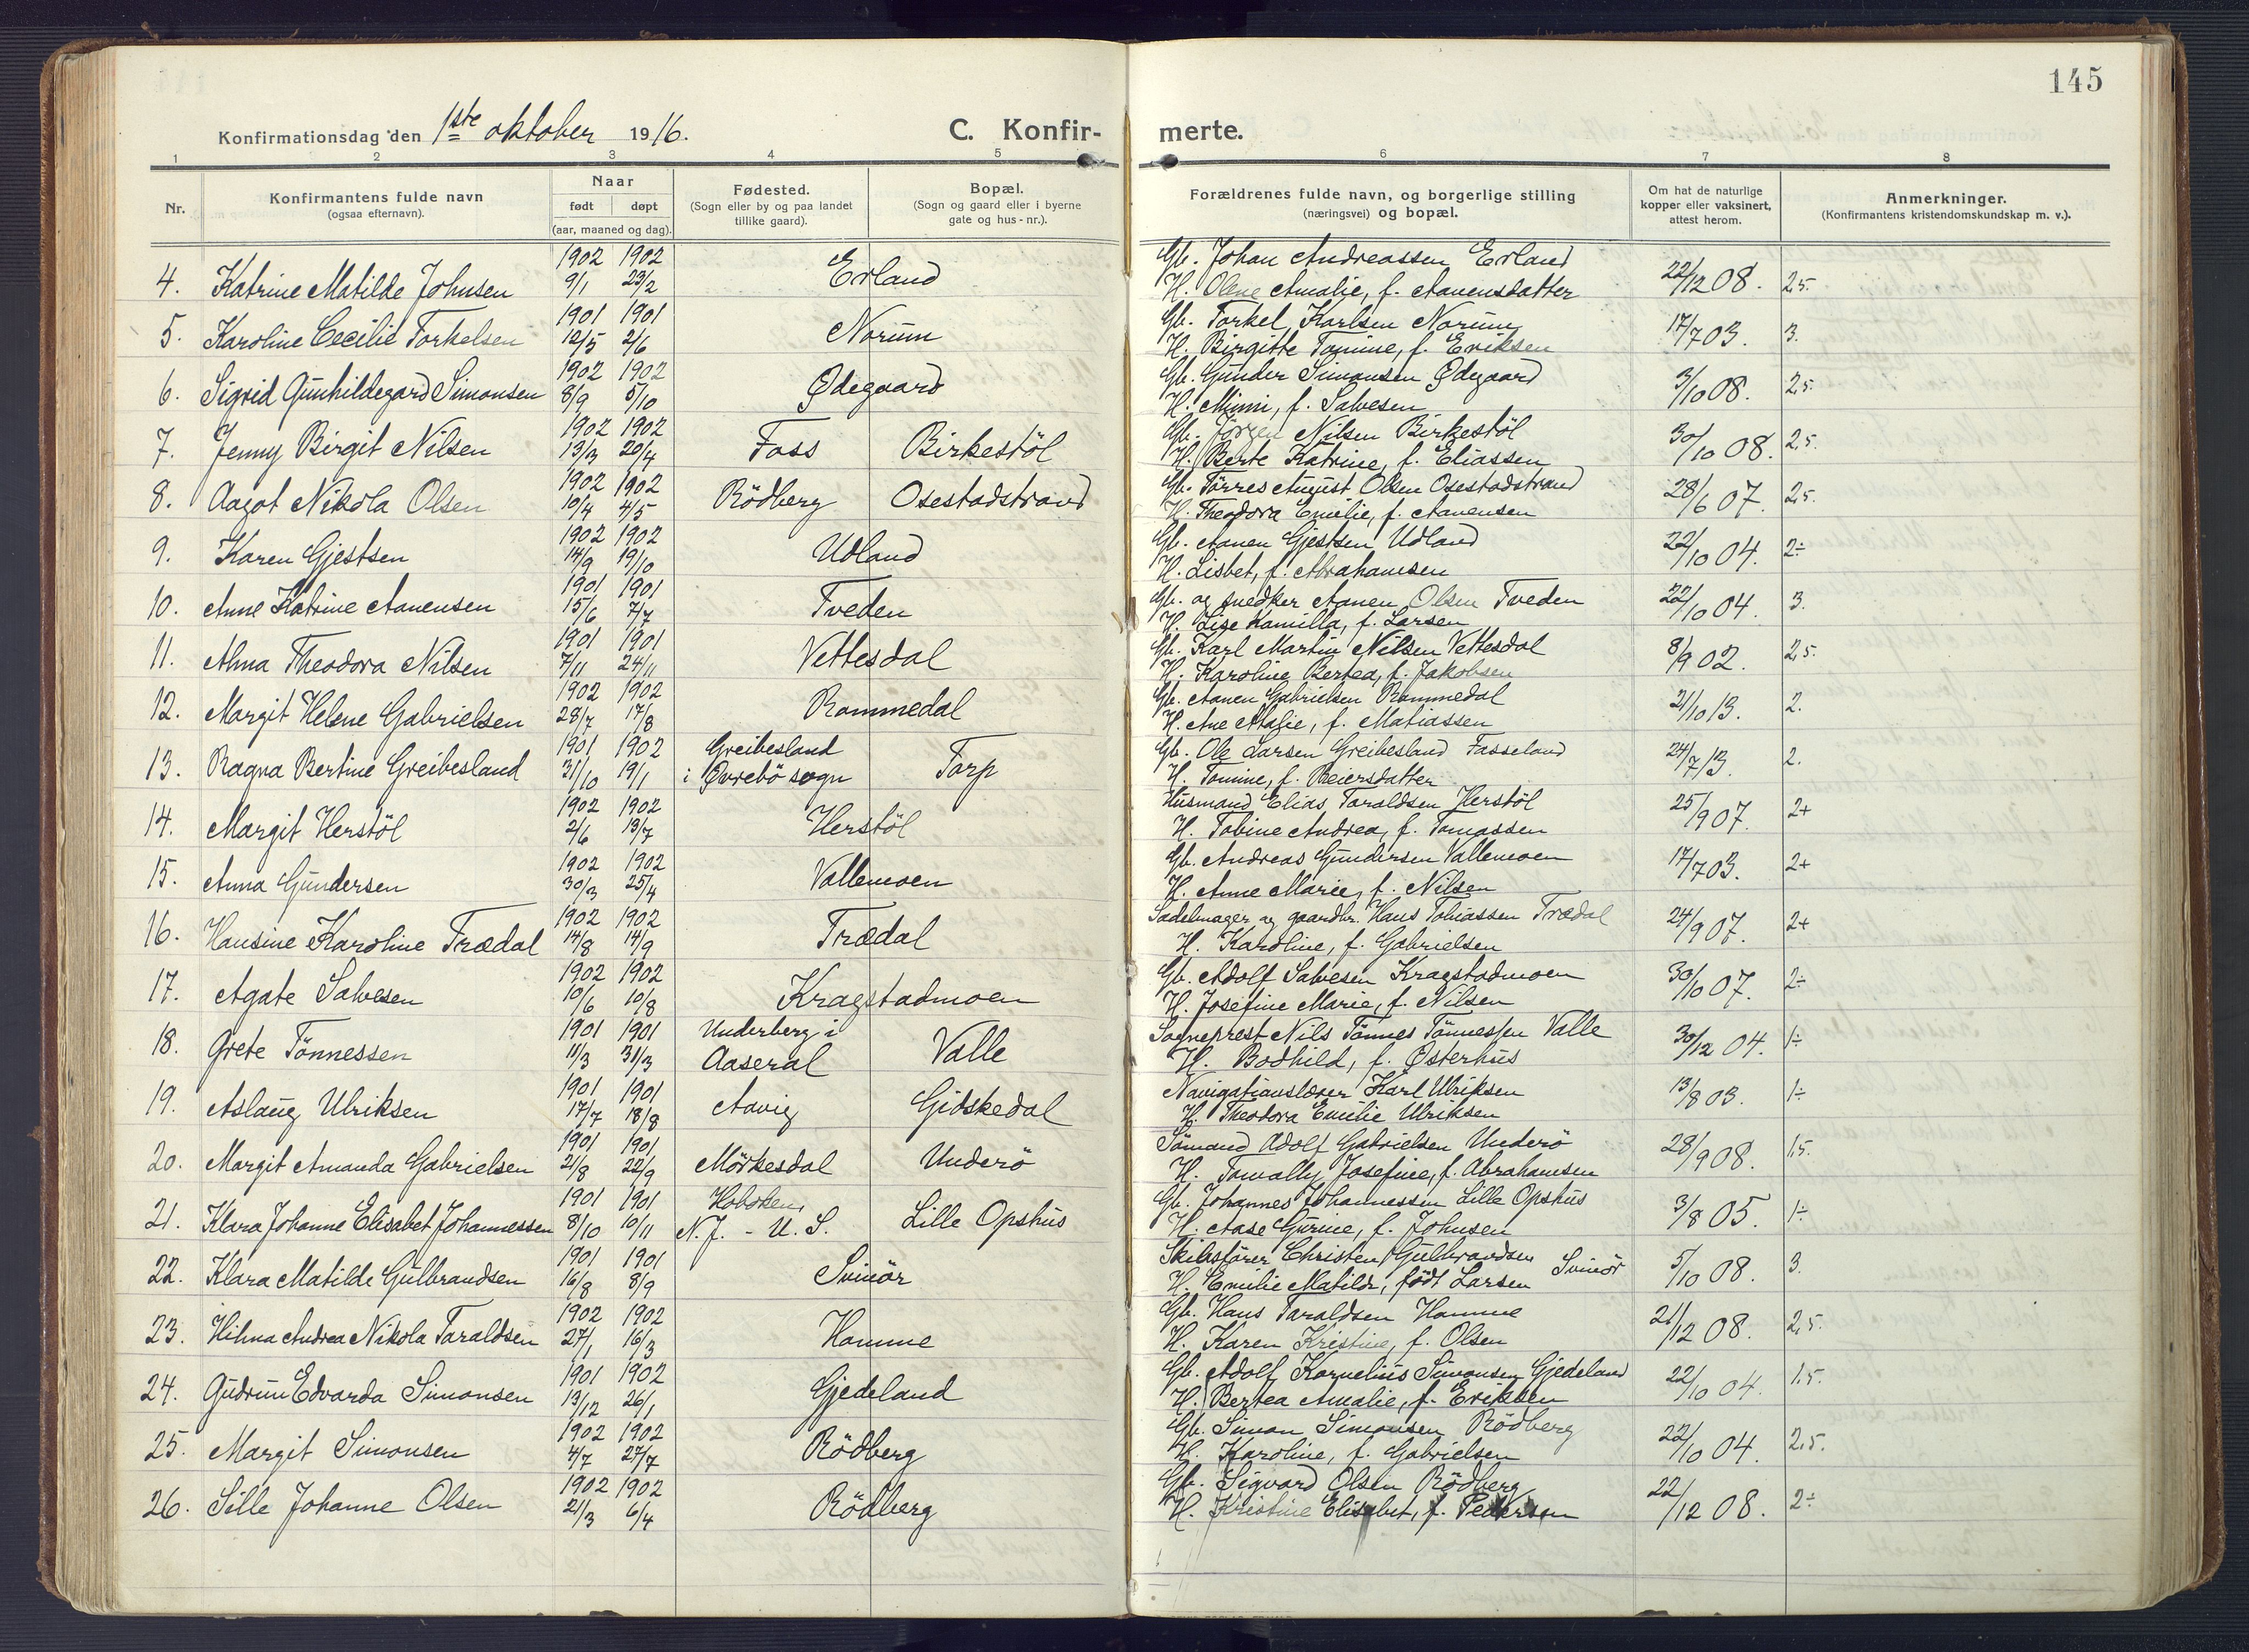 145
Konfirmationsdag den 1ste oktober 1916.
C. Konfir- merte.
1 2 3 4 5 6 7 8
Nr.
Konfirmantens fulde navn
(ogsaa efternavn).
Naar
født døpt
(aar, maaned og dag).
Fødested.
(Sogn eller by og paa landet
tillike gaard).
Bopæl.
(Sogn og gaard eller i byerne
gate og hus-nr.).
Forældrenes fulde navn, og borgerlige stilling
(næringsvei) og bopæl.
Om hat de naturlige
kopper eller vaksinert,
attest herom.
Anmerkninger.
(Konfirmantens kristendomskundskap m. v.).
1902 1902 Gb. Johan Andreassen Erland
4. Katrine Matilde Johnsen 9/1 23/2 Erland H. Olene Amalie, f. Aanensdatter 22/12 08. 2,5.
1901 1901 Gb. Torkel Karlsen Norum
5. Karoline Cecilie Torkelsen 12/5 2/6 Norum H. Birgitte Tomine, f. Eriksen 17/7 03. 3.
1902 1902 Gb. Gunder Simonsen Ødegaard
6. Sigrid Gunhildegard Simonsen 8/9 5/10 Ødegaard H. Mimi, f. Salvesen 3/10 08. 2,5
1902 1902 Gb. Jörgen Nilsen Birkestöl
7. Jenny Birgit Nilsen 13/3 20/4 Foss Birkestöl H. Berte Katrine, f. Eliassen 30/10 08. 2,5.
1902 1902 Gb. Törres August Olsen Osestadstrand
8. Aagot Nikola Olsen 10/4 4/5 Rödberg Osestadstrand H. Theodora Emilie, f. Aanensen 28/6 07. 2,5.
1902 1902 Gb. Aanen Gjestsen Udland
9. Karen Gjestsen 14/9 19/10 Udland H. Lisbet, f. Abrahamsen 22/10 04. 2÷
1901 1901 Gb. og snedker Aanen Olsen Tveden
10. Anne Katrine Aanensen 15/6 7/7 Tveden H. Lise Kamilla, f. Larsen 22/10 04. 3.
1901 1901 Gb. Karl Martin Nilsen Vettesdal
11. Alma Theodora Nilsen 7/11 24/11 Vettesdal H. Karoline Bertea, f. Jakobsen 8/9 02. 2,5.
1902 1902 Gb. Aanen Gabrielsen Rommedal
12. Margit Helene Gabrielsen 28/7 17/8 Rommedal H. Ane Malie, f. Matiassen 21/10 13. 2.
1901 1902 Greibesland Gb. Ole Larsen Greibesland Fasseland
13. Ragna Bertine Greibesland 31/10 19/1 i Øvrebö sogn Torp H. Tomine, f. Reiersdatter 24/7 13. 2.
1902 1902 Husmand Elias Taraldsen Herstöl
14. Margit Herstöl 2/6 13/7 Herstöl H. Tobine Andrea, f. Tomassen 25/9 07. 2+
1902 1902 Gb. Andreas Gundersen Vallemoen
15. Anna Gundersen 30/3 25/4 Vallemoen H. Anne Marie, f. Nilsen 17/7 03. 2+
1902 1902 Sadelmager og gaardbr. Hans Tobiassen Trædal
16. Hansine Karoline Trædal 14/8 14/9 Trædal H. Karoline, f. Gabrielsen 24/9 07. 2+
1902 1902 Gb. Adolf Salvesen Kragstadmoen
17. Agate Salvesen 10/6 10/8 Kragstadmoen H. Josefine Marie, f. Nilsen 30/10 07. 2÷
1901 1901 Underberg i Sogneprest Nils Tönnes Tönnessen Valle
18. Grete Tönnessen 11/3 31/3 Aaseral Valle H. Bodhild, f. Østerhus 30/12 04. 1÷
1901 1901 Navigationslærer Karl Ulriksen
19. Aslaug Ulriksen 17/7 18/8 Aavig Gidskedal H. Theodora Emilie Ulriksen 13/8 03. 1÷
1901 1901 Sömand Adolf Gabrielsen Underö
20. Margit Amanda Gabrielsen 21/8 22/9 Mörkesdal Underö H. Tomally Josefine, f. Abrahamsen 28/9 08. 1,5.
1901 1901 Hoboken, Gb. Johannes Johannessen Lille Opshus
21. Klara Johanne Elisabet Johannessen 8/10 10/11 N. J. - U. S. Lille Opshus H. Aase Gurine, f. Johnsen 3/8 05. 1÷
1901 1901 Skibsfører Christen Gulbrandsen Svinör
22. Klara Matilde Gulbrandsen 16/8 8/9 Svinör H. Emilie Matilde, født Larsen 5/10 08. 3.
1902 1902 Gb. Hans Taraldsen Homme
23. Hilma Andrea Nikola Taraldsen 27/1 16/3 Homme H. Karen Kristine, f. Olsen 21/12 08. 2,5.
1901 1902 Gb. Adolf Kornelius Simonsen Gjedeland
24. Gudrun Edvarda Simonsen 13/12 26/1 Gjedeland H. Bertea Amalie, f. Eriksen 22/10 04. 1,5.
1902 1902 Gb. Simon Simonsen Rödberg
25. Margit Simonsen 4/7 27/7 Rödberg H. Karoline, f. Gabrielsen 22/10 04. 2,5.
1902 1902 Gb. Sigvard Olsen Rödberg
26. Sille Johanne Olsen 21/3 6/4 Rödberg H. Kristine Elisabet, f. Pedersen 22/12 08. 2÷